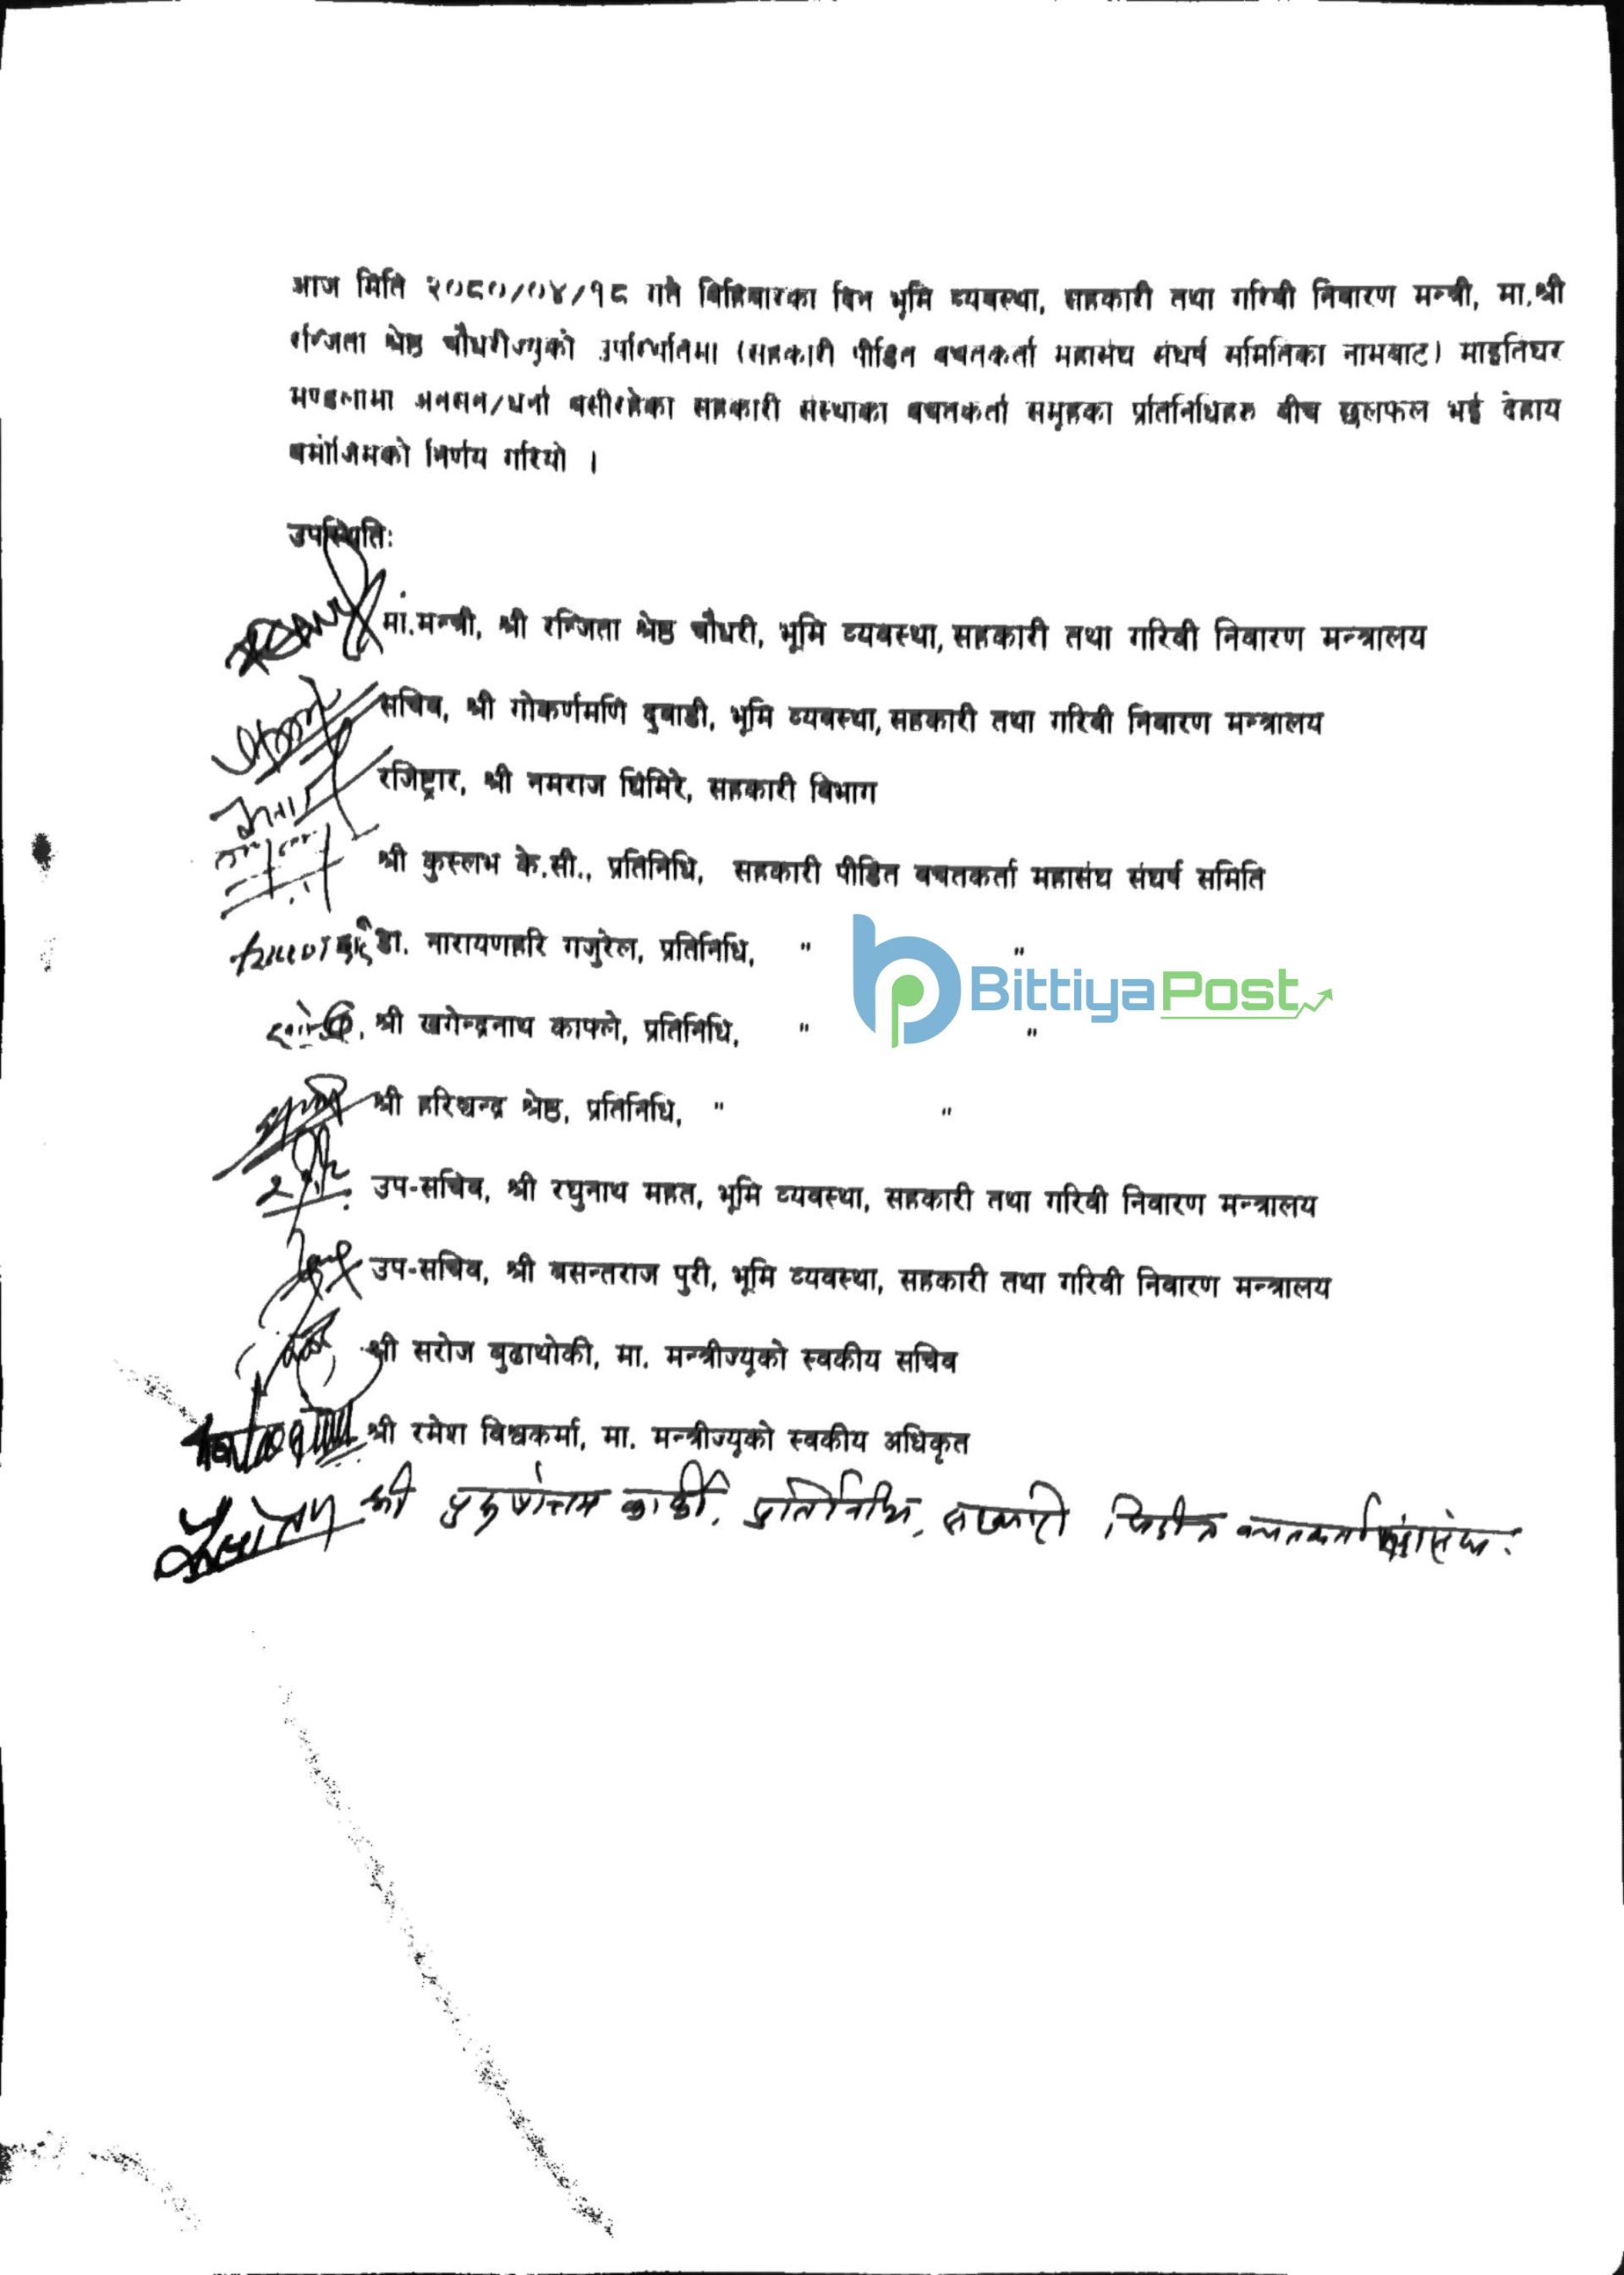 आज मिति २०८०/०४/१८ गते बिहिबारका दिन भूमि व्यवस्था, सहकारी तथा गरिबी निवारण मन्त्री, मा.श्री
रन्जिता श्रेष्ठ चौधरीज्यूको उपस्थितिमा (सहकारी पीडित बचतकर्ता महासंघ संघर्ष समितिका नामबाट) माइतिघर
मण्डलामा अनसन/धर्ना बसीरहेका सहकारी संस्थाका बचतकर्ता समूहका प्रतिनिधिहरु बीच छलफल भई देहाय
बमोजिमको निर्णय गरियो ।
उपस्थितिः
मा.मन्त्री, श्री रन्जिता श्रेष्ठ चौधरी, भूमि व्यवस्था, सहकारी तथा गरिबी निवारण मन्त्रालय
सचिव, श्री गोकर्णमणि दुवाडी, भूमि व्यवस्था, सहकारी तथा गरिबी निवारण मन्त्रालय
रजिष्ट्रार, श्री नमराज घिमिरे, सहकारी विभाग
श्री कुस्लभ के.सी., प्रतिनिधि, सहकारी पीडित बचतकर्ता महासंघ संघर्ष समिति
डा. नारायणहरि गजुरेल, प्रतिनिधि, " "
BittiyaPost
श्री खगेन्द्रनाथ काफ्ले, प्रतिनिधि, " "
श्री हरिश्चन्द्र श्रेष्ठ, प्रतिनिधि, " "
उप-सचिव, श्री रघुनाथ महत, भूमि व्यवस्था, सहकारी तथा गरिबी निवारण मन्त्रालय
उप-सचिव, श्री बसन्तराज पुरी, भूमि व्यवस्था, सहकारी तथा गरिबी निवारण मन्त्रालय
श्री सरोज बुढाथोकी, मा. मन्त्रीज्यूको स्वकीय सचिव
श्री रमेश विश्वकर्मा, मा. मन्त्रीज्यूको स्वकीय अधिकृत
श्री पुरुषोत्तम कार्की, प्रतिनिधि, सहकारी पिडीत बचतकर्ता महासंघ.